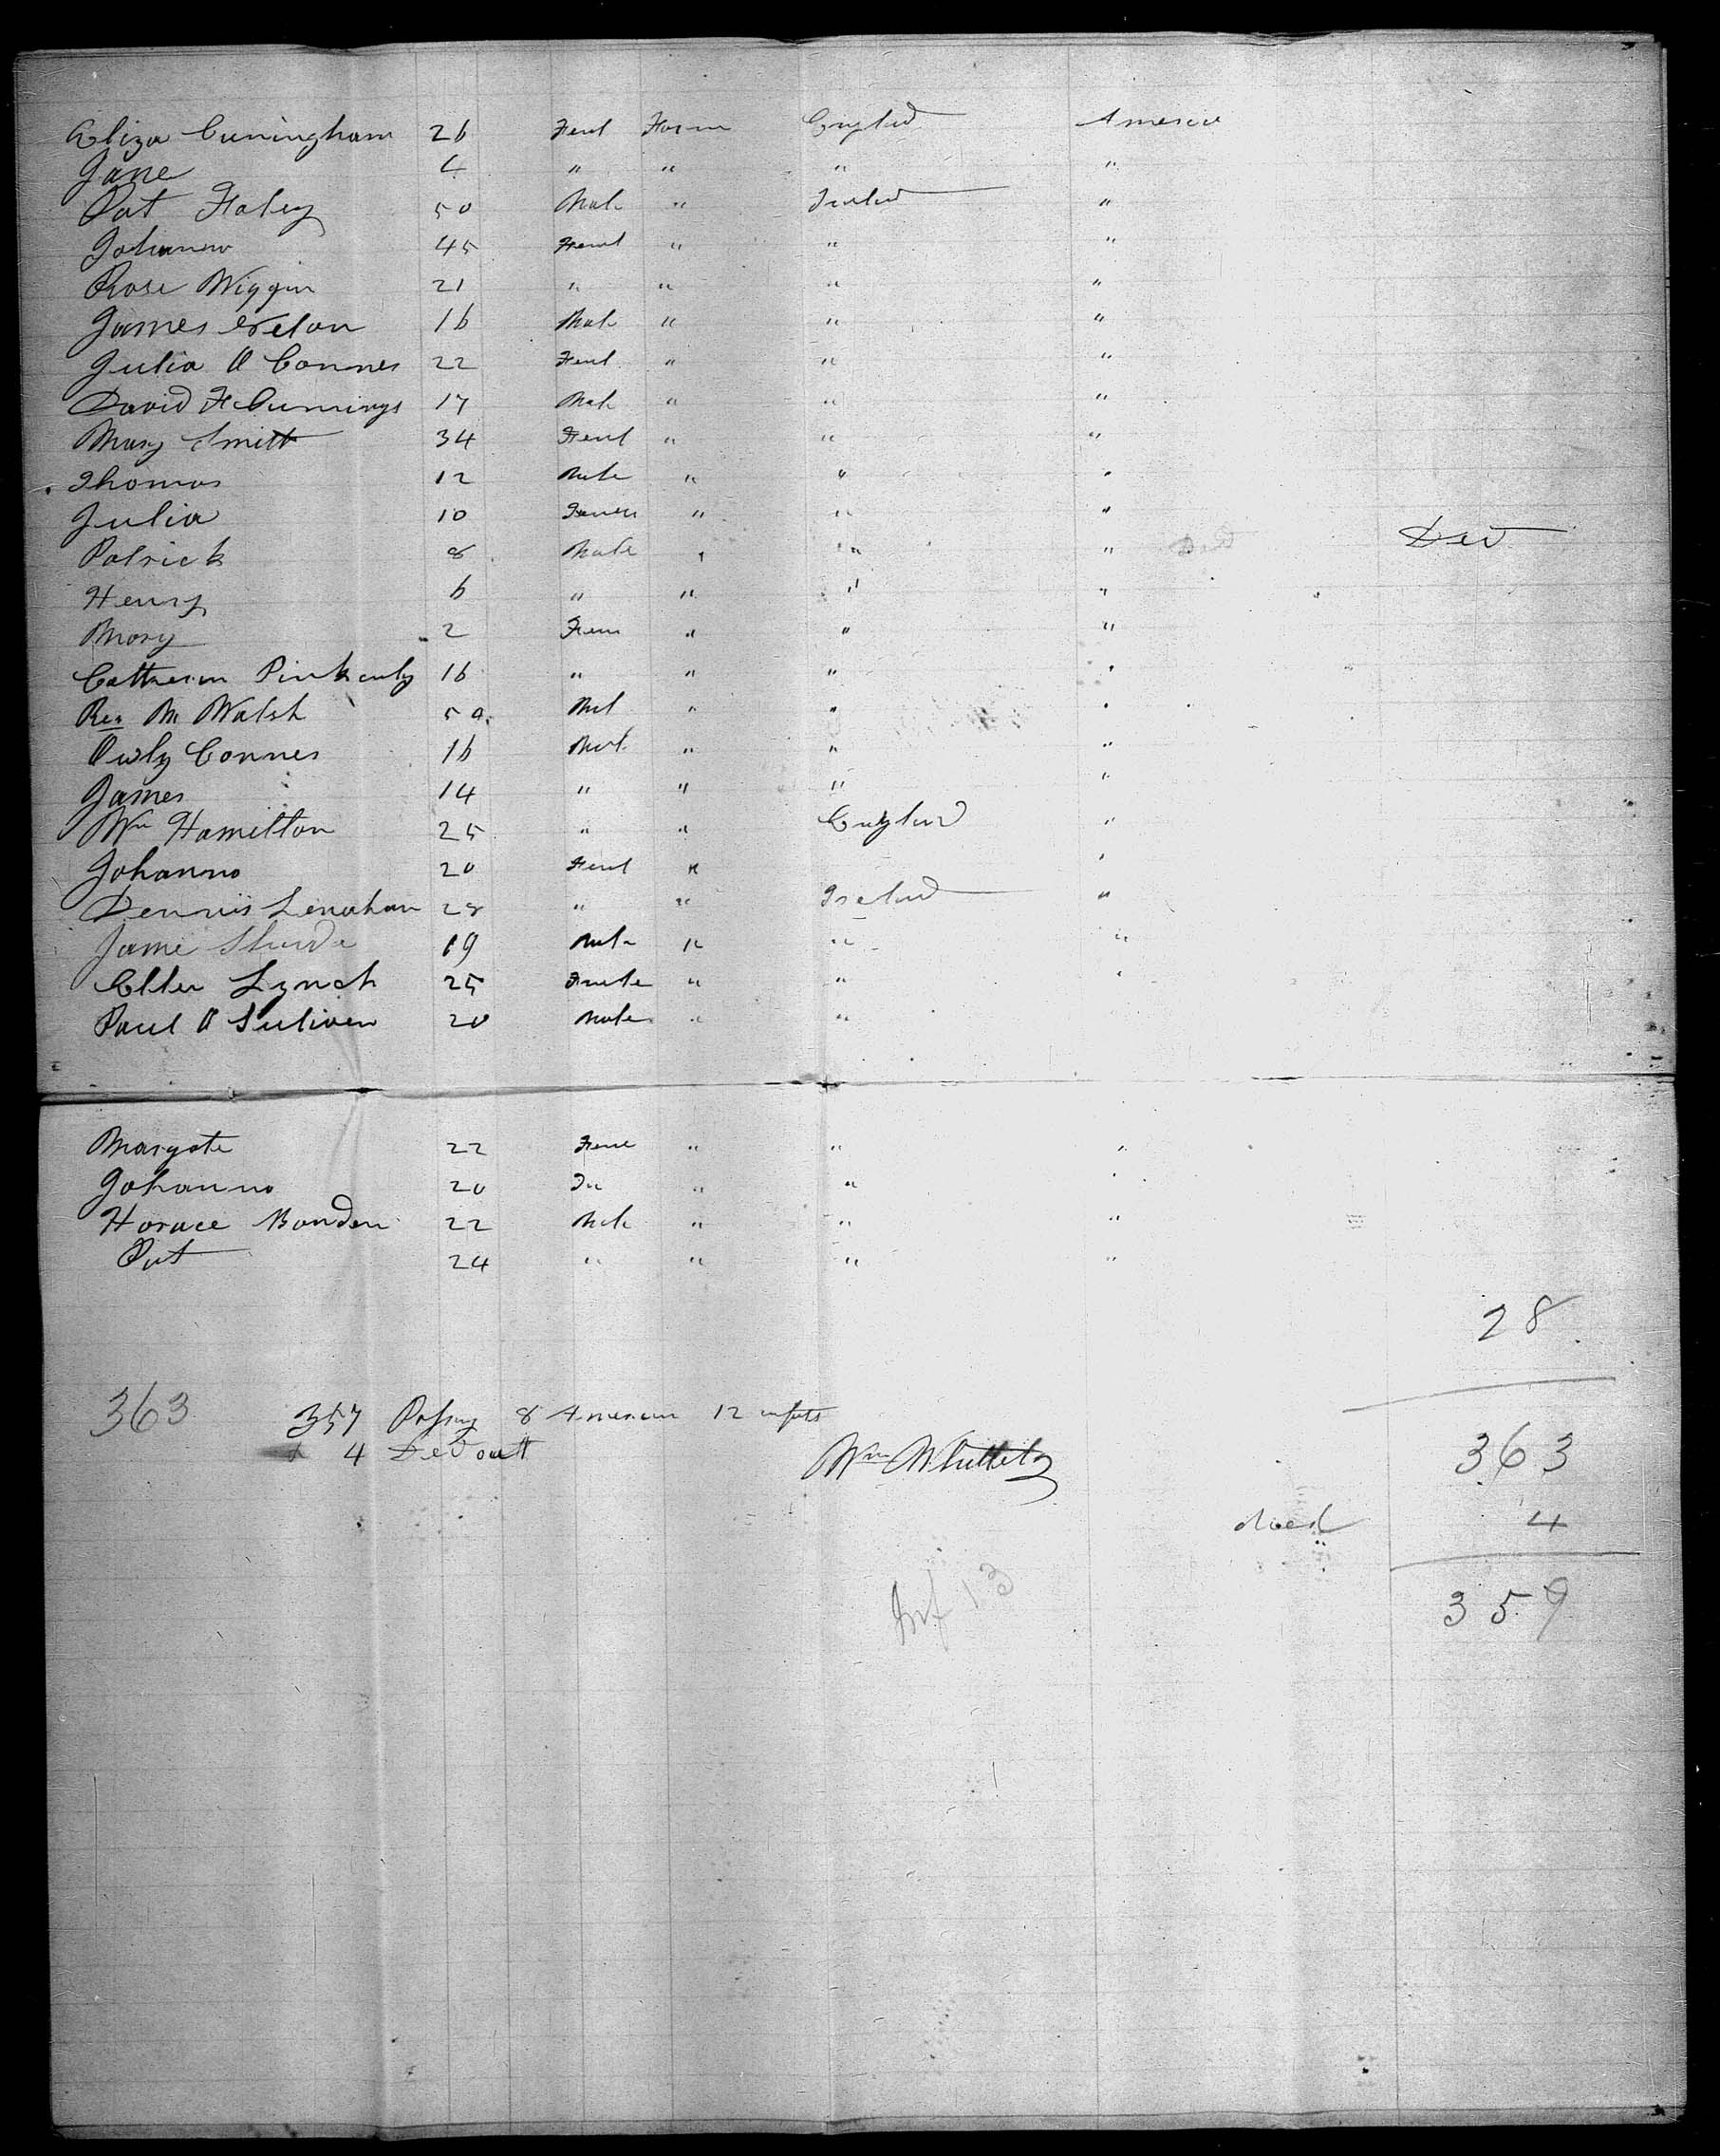 Eliza Cuningham 26 Feml Farm England America
Jane 4 " " " "
Pat Haley 50 Male " Ireland "
Johanna 45 Feml " " "
Rose Wiggin 21 " " " "
James 16 Male " " "
Julia O Conner 22 Feml " " "
David F Cummings 17 Male " " "
Mary Smitt 34 Feml " " "
Thomas 12 Male " " "
Julia 10 " " "
Patrick 8 Male " " " Ded
Henry 6 " " " "
Mary 2 Fem " " "
16 " " " "
Rev M Walsh 50 Mal " " "
Conner 16 Mal " " "
James 14 " " " "
Wm Hamilton 25 " " England "
Johanna 20 Feml " "
Dennis Lenahan 28 " " Ireland "
Jame 19 Male " " "
Ellen Lynch 25 Female " " "
Paul O Suliven 20 Male " "
Margate 22 Feme " " "
Johanna 20 " " "
Horace Bonden 22 Male " " "
Pat 24 " " " "
28
363 357 Passng 8 American 12 infats
4 Ded outt
Wm Whittlet
363
died 4
Inf 13
359